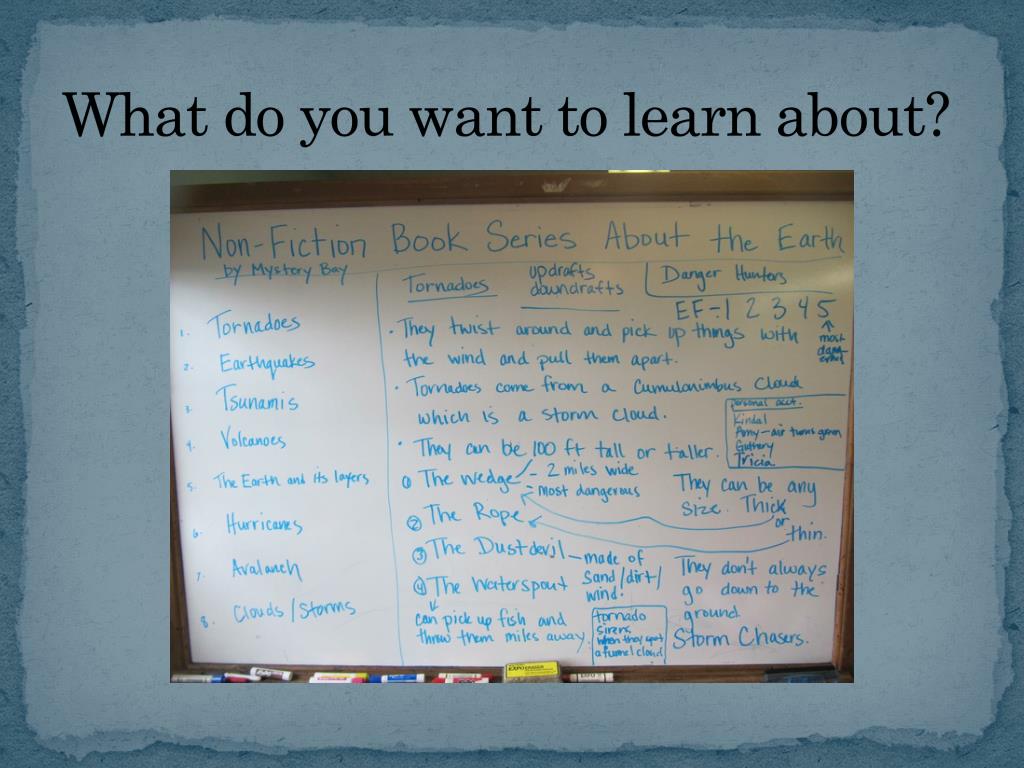 What do you want to learn about?
Non-Fiction Book Series About the Earth
by Mystery Bay
1. Tornadoes
2. Earthquakes
3. Tsunamis
4. Volcanoes
5. The Earth and its layers
6. Hurricanes
7. Avalanch
8. Clouds/Storms
Tornadoes
updrafts
downdrafts
Danger Hunters
EF-1 2 3 4 5
most
dang-
erous
• They twist around and pick up things with
the wind and pull them apart.
• Tornadoes come from a Cumulonimbus Cloud
which is a storm cloud.
personal acct.
Kindal
Amy-air turns green
Guthery
Tricia
• They can be 100 ft tall or taller.
① The wedge - 2 miles wide
- most dangerous
② The Rope
③ The Dustdevil - made of
sand/dirt/
wind!
④ The Waterspout
can pick up fish and
throw them miles away.
They can be any
size. Thick
or
thin.
They don't always
go down to the
ground.
tornado
sirens
when they spot
a funnel cloud
Storm Chasers.
EXPO ERASER
EXPO